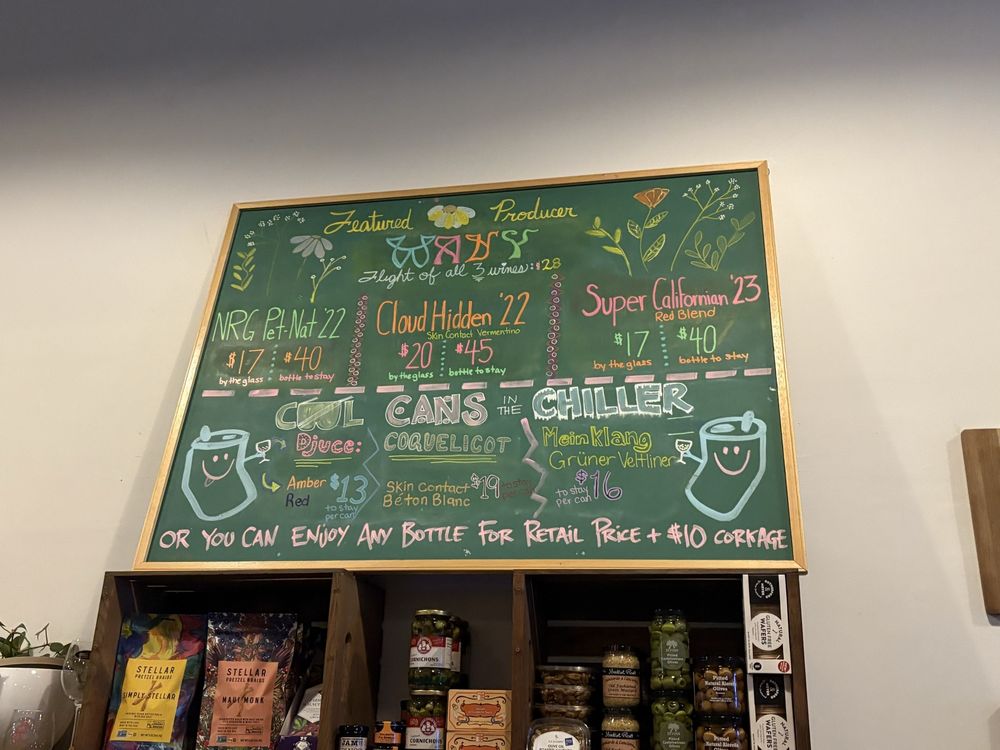 Featured Producer
WAVY
Flight of all 3 wines: $28
NRG Pet-Nat '22
$17 $40
by the glass bottle to stay
Cloud Hidden '22
Skin Contact Vermentino
$20 $45
by the glass bottle to stay
Super Californian '23
Red Blend
$17 $40
by the glass bottle to stay
COOL CANS IN THE CHILLER
Djuce:
Amber
Red
$13
to stay
per can
COQUELICOT
Skin Contact
Béton Blanc
$19
to stay
per can
Meinklang
Grüner Veltliner
to stay
per can
$16
OR YOU CAN ENJOY ANY BOTTLE FOR RETAIL PRICE + $10 CORKAGE
STELLAR
PRETZEL BRAIDS
SIMPLY STELLAR
STELLAR
PRETZEL BRAIDS
MAUI MONK
JAM
CORNICHONS
CORNICHONS
Pitted
Natural Alorena
Olives
Pitted
Natural Alorena
NATURAL
GLUTEN FREE
WAFERS
NATURAL
GLUTEN FREE
WAFERS